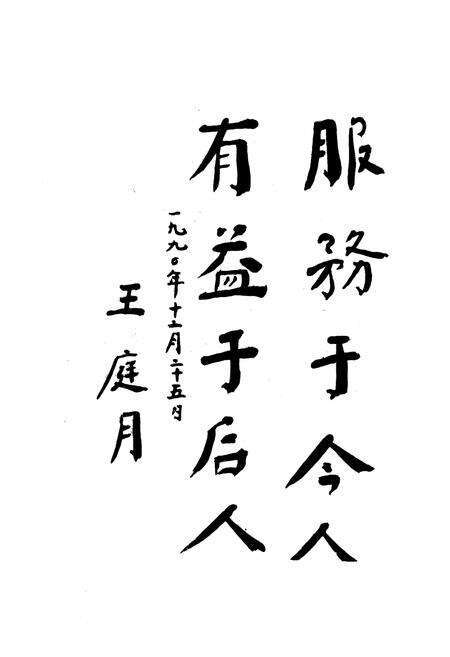 服務于今人
有益于后人
一九九〇年十二月二十五日
王庭月